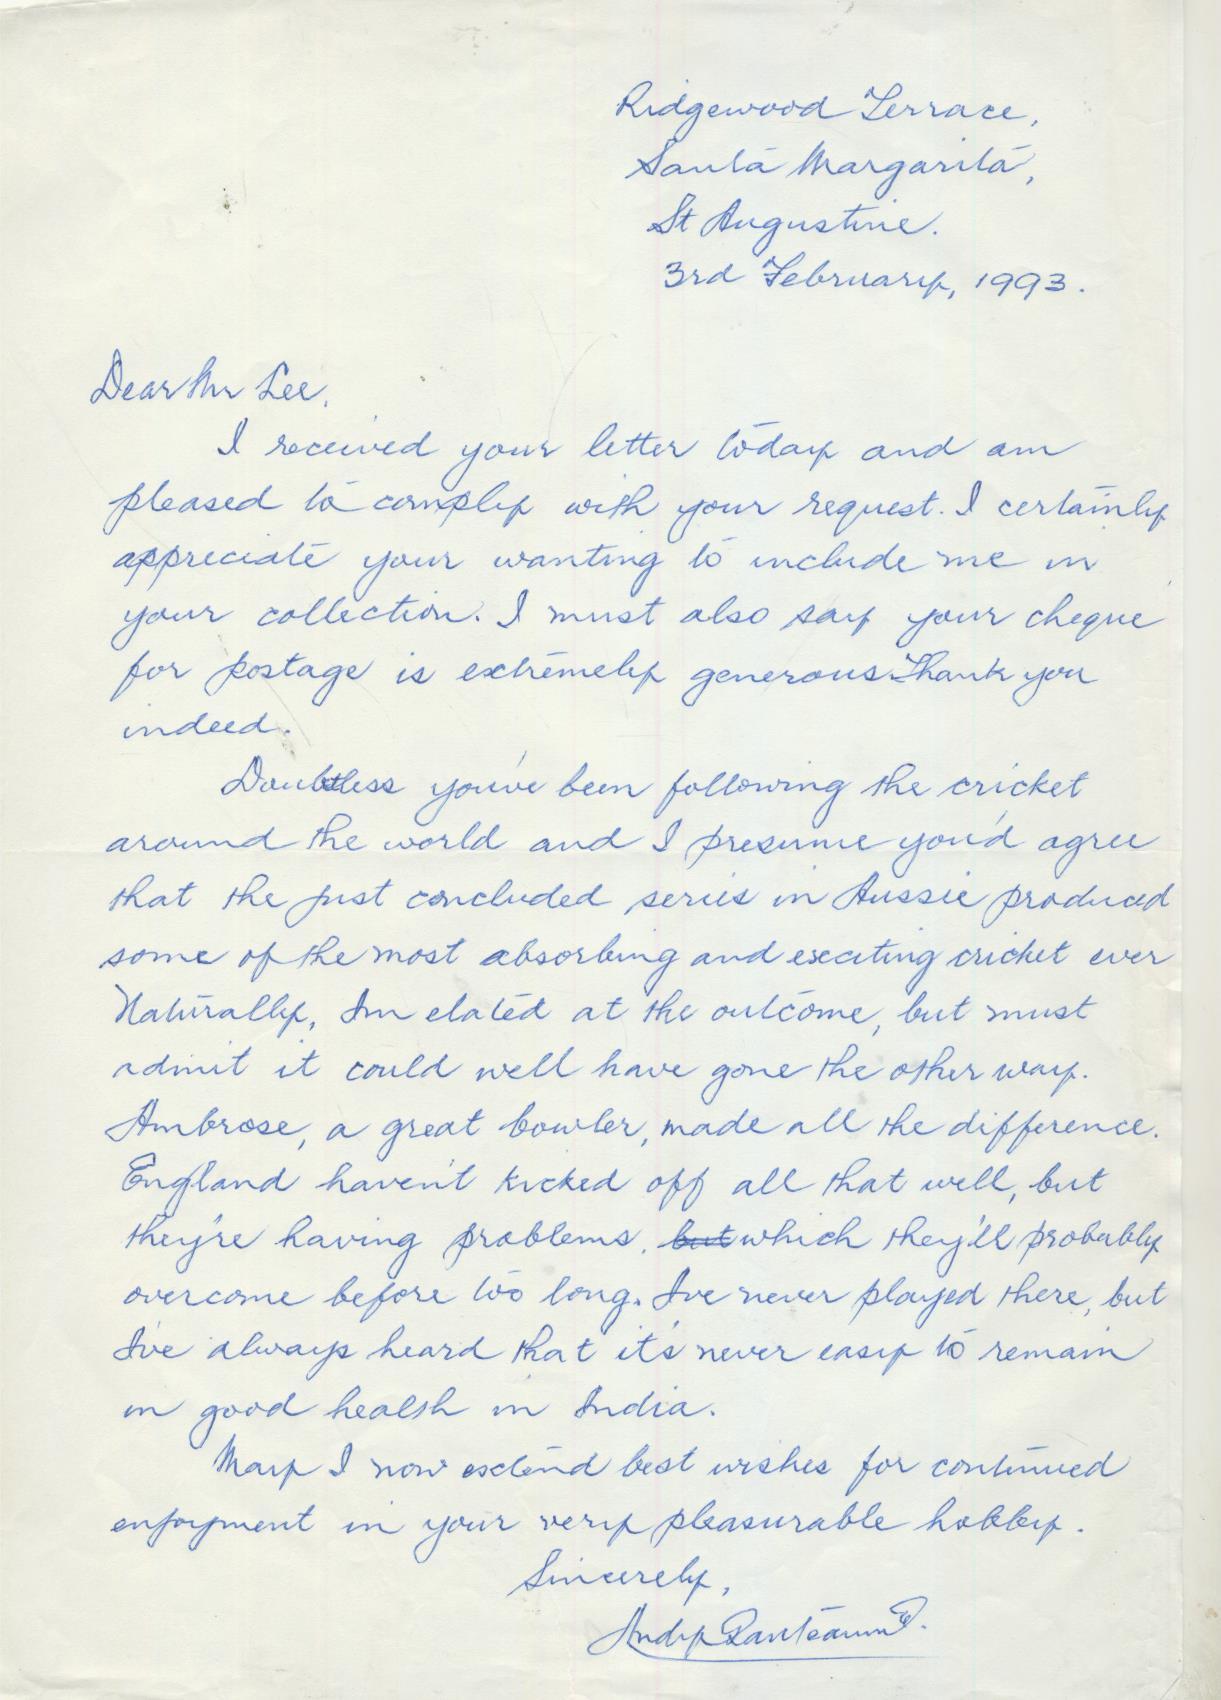 Ridgewood Terrace,
Santa Margarita,
St Augustine.
3rd February, 1993.
Dear Mr Lee,
I received your letter today and am
pleased to comply with your request. I certainly
appreciate your wanting to include me in
your collection. I must also say your cheque
for postage is extremely generous. Thank you
indeed.
Doubtless you've been following the cricket
around the world and I presume you'd agree
that the just concluded series in Aussie produced
some of the most absorbing and exciting cricket ever
Naturally, I'm elated at the outcome, but must
admit it could well have gone the other way.
Ambrose, a great bowler, made all the difference.
England haven't kicked off all that well, but
they're having problems, but which they'll probably
overcome before too long. I've never played there, but
I've always heard that it's never easy to remain
in good health in India.
May I now extend best wishes for continued
enjoyment in your very pleasurable hobby.
Sincerely,
Andy Ganteaume.